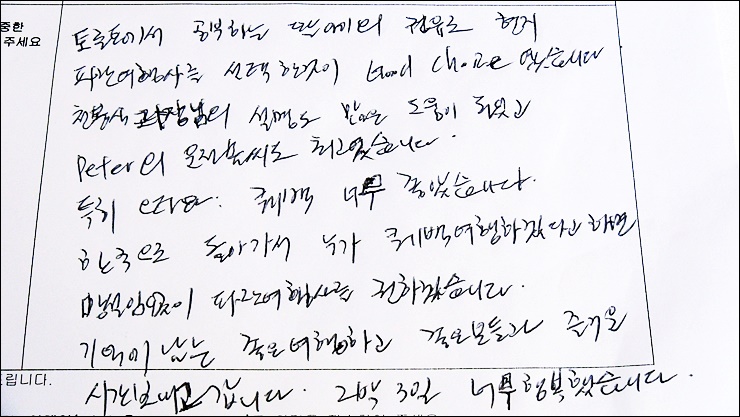 중한
주세요
토론토에서 공부하는 딸애의 권유로 현지
파란여행사를 선택한것이 Good choice 였습니다
과장님의 설명도 많은 도움이 되었고
Peter의 운전솜씨도 최고였습니다.
특히 퀘벡 너무 좋았습니다.
한국으로 돌아가서 누가 퀘백여행하겠다고 하면
망설임없이 파란여행사를 권하겠습니다.
기억에 남는 좋은여행하고 좋은분들과 즐거운
드립니다.
시간보내고 갑니다. 2박 3일 너무 행복했습니다.